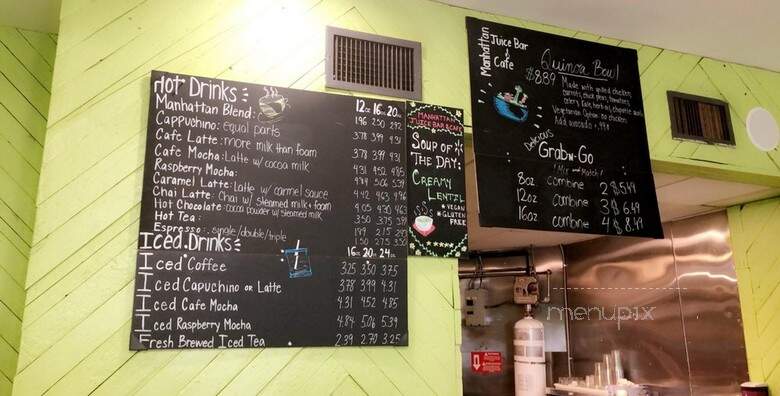 Hot Drinks:
12oz 16oz 20oz
Manhattan Blend: 196 250 292
Cappuchino: Equal parts 378 399 431
Cafe Latte: more milk than foam 378 399 431
Cafe Mocha: Latte w/ cocoa milk 431 452 485
Raspberry Mocha: 484 506 539
Caramel Latte: Latte w/ carmel sauce 442 463 496
Chai Latte: Chai w/ steamed milk + foam 405 430 463
Hot Chocolate: cocoa powder w/ steamed milk 350 375 399
Hot Tea: 199 215 247
Espresso: single/double/triple 150 275 350
Iced Drinks:
16oz 20oz 24oz
Iced Coffee 325 350 375
Iced Capuchino or Latte 378 399 431
Iced Cafe Mocha 4.31 4.52 4.85
Iced Raspberry Mocha 4.84 5.06 5.39
Fresh Brewed Iced Tea 2.39 2.70 3.25
Manhattan
Juice Bar & Cafe
Soup of
the Day:
Creamy
Lentil
• Vegan
• Gluten
Free
Manhattan
Juice Bar
&
Cafe
Quinoa Bowl
$8.89
Made with grilled chicken,
carrots, chick peas, tomatoes,
celery, kale,
Vegetarian Option: no chicken
Add avocado +.99¢
Delicious
Grab-N-Go
(Mix and Match)
8oz combine 2 $5.49
12oz combine 3 $6.49
16oz combine 4 $8.49
menupix